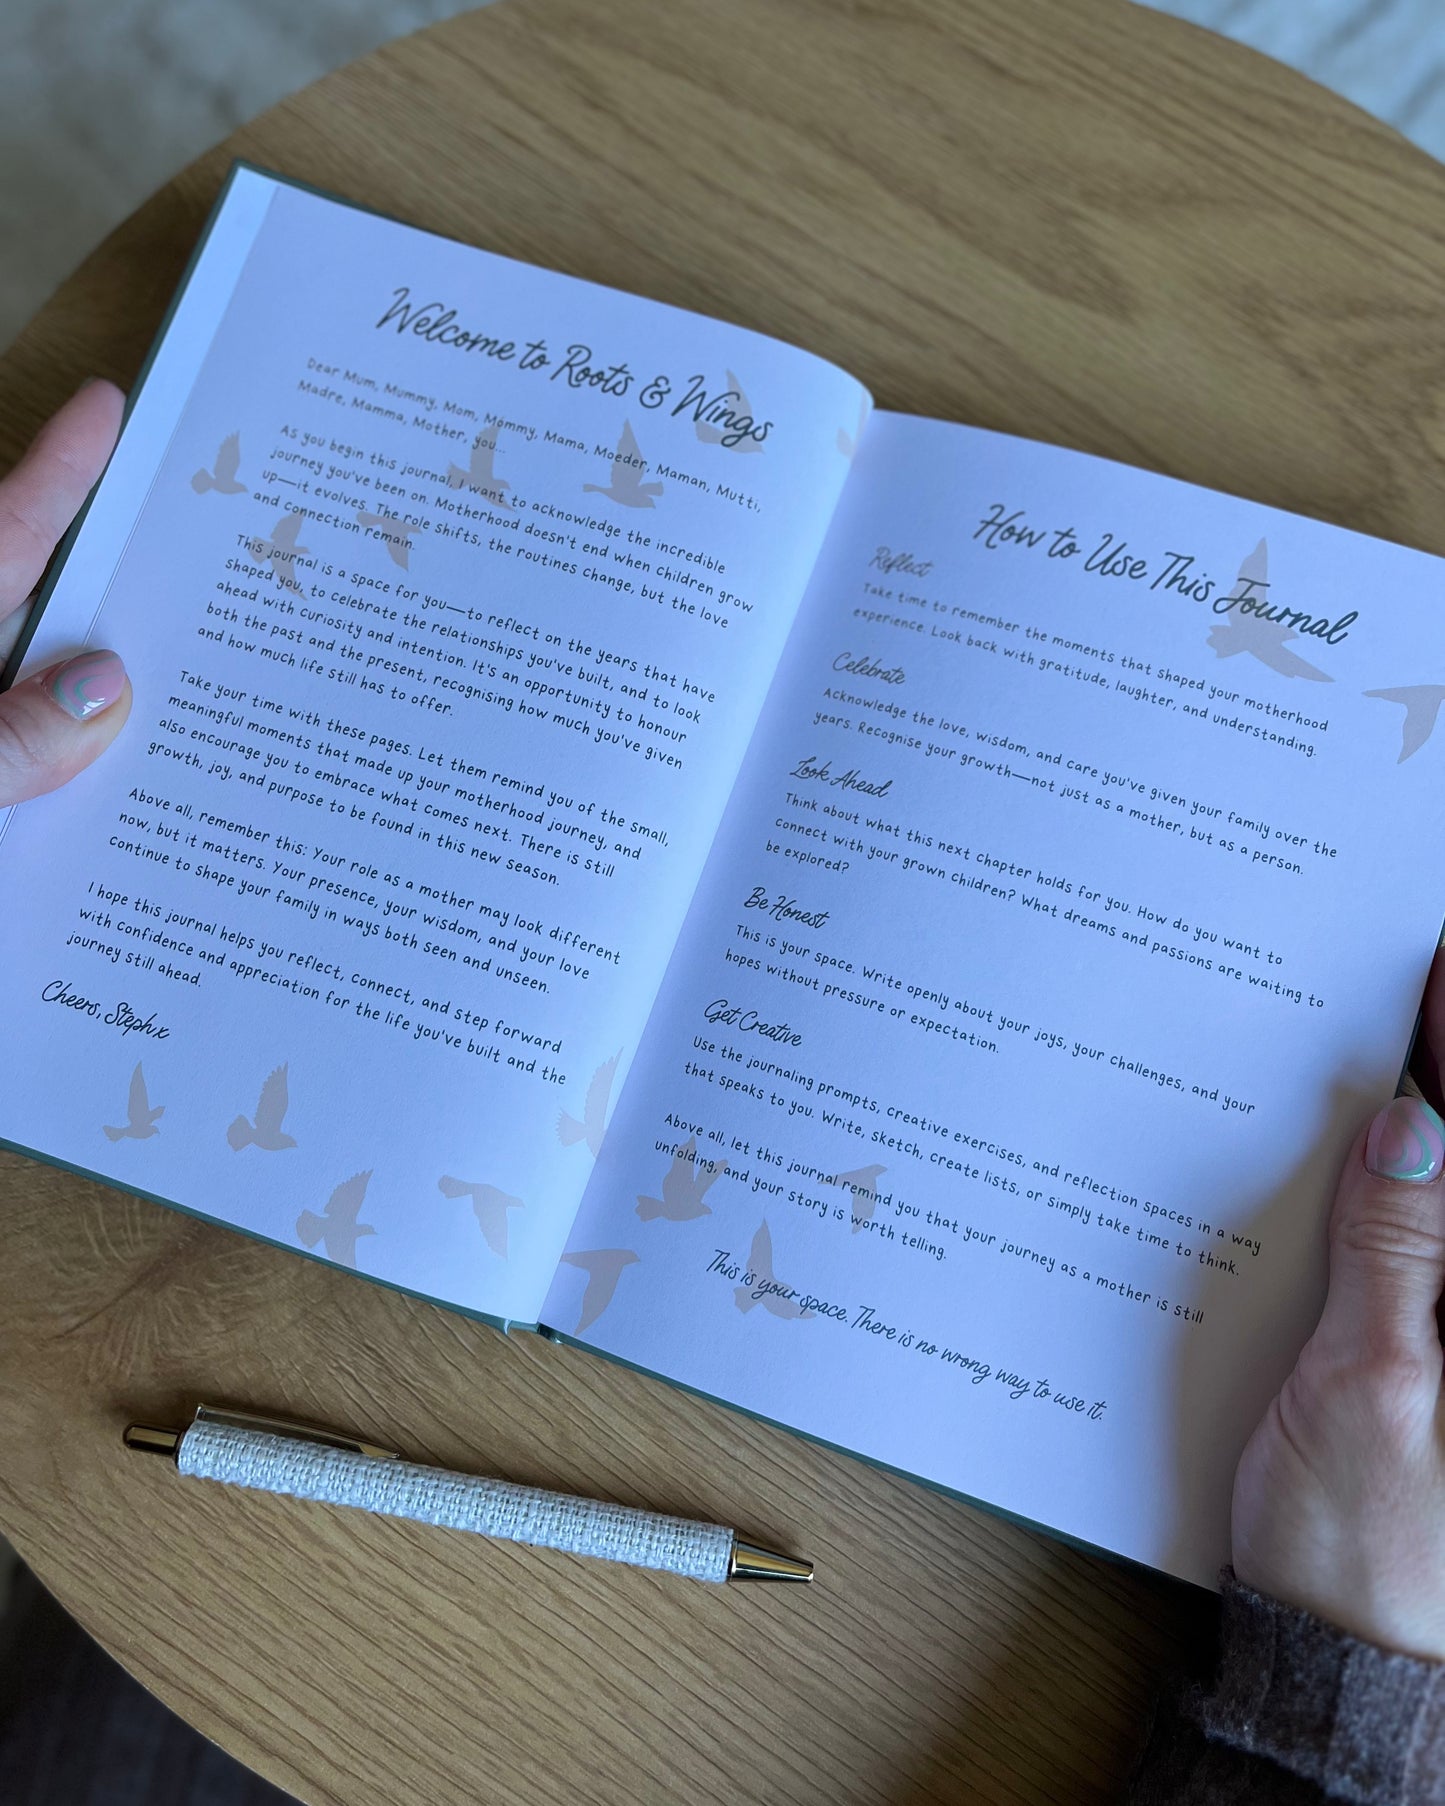 Welcome to Roots & Wings
Dear Mum, Mummy, Mom, Mommy, Mama, Moeder, Maman, Mutti,
Madre, Mamma, Mother, you...
As you begin this journal, I want to acknowledge the incredible
journey you've been on. Motherhood doesn't end when children grow
up—it evolves. The role shifts, the routines change, but the love
and connection remain.
This journal is a space for you—to reflect on the years that have
shaped you, to celebrate the relationships you've built, and to look
ahead with curiosity and intention. It's an opportunity to honour
both the past and the present, recognising how much you've given
and how much life still has to offer.
Take your time with these pages. Let them remind you of the small,
meaningful moments that made up your motherhood journey, and
also encourage you to embrace what comes next. There is still
growth, joy, and purpose to be found in this new season.
Above all, remember this: Your role as a mother may look different
now, but it matters. Your presence, your wisdom, and your love
continue to shape your family in ways both seen and unseen.
I hope this journal helps you reflect, connect, and step forward
with confidence and appreciation for the life you've built and the
journey still ahead.
Cheers, Steph x
How to Use This Journal
Reflect
Take time to remember the moments that shaped your motherhood
experience. Look back with gratitude, laughter, and understanding.
Celebrate
Acknowledge the love, wisdom, and care you've given your family over the
years. Recognise your growth—not just as a mother, but as a person.
Look Ahead
Think about what this next chapter holds for you. How do you want to
connect with your grown children? What dreams and passions are waiting to
be explored?
Be Honest
This is your space. Write openly about your joys, your challenges, and your
hopes without pressure or expectation.
Get Creative
Use the journaling prompts, creative exercises, and reflection spaces in a way
that speaks to you. Write, sketch, create lists, or simply take time to think.
Above all, let this journal remind you that your journey as a mother is still
unfolding, and your story is worth telling.
This is your space. There is no wrong way to use it.